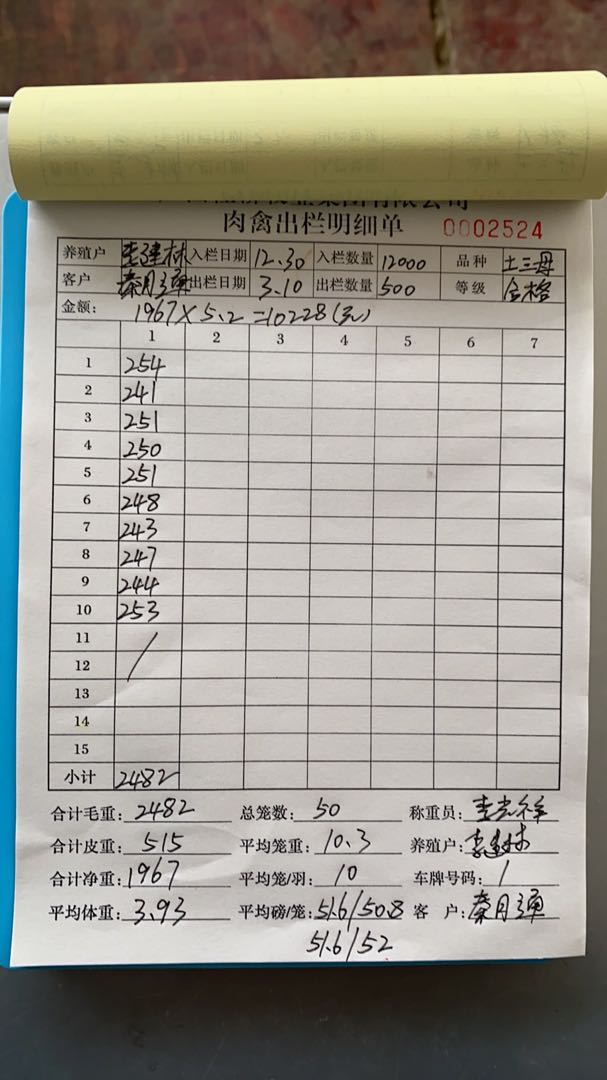 肉禽出栏明细单 0002524
养殖户 李建林 入栏日期 12.30 入栏数量 12000 品种 土三母
客户 秦月 出栏日期 3.10 出栏数量 500 等级 合格
金额: 1967×5.2=10228(元)
1 2 3 4 5 6 7
1 254
2 241
3 251
4 250
5 251
6 248
7 243
8 247
9 244
10 253
11
12
13
14
15
小计 2482
合计毛重: 2482 总笼数: 50 称重员:
合计皮重: 515 平均笼重: 10.3 养殖户: 李建林
合计净重: 1967 平均笼/羽: 10 车牌号码: /
平均体重: 3.93 平均磅/笼: 51.6/50.8 客 户: 秦月
51.6/52